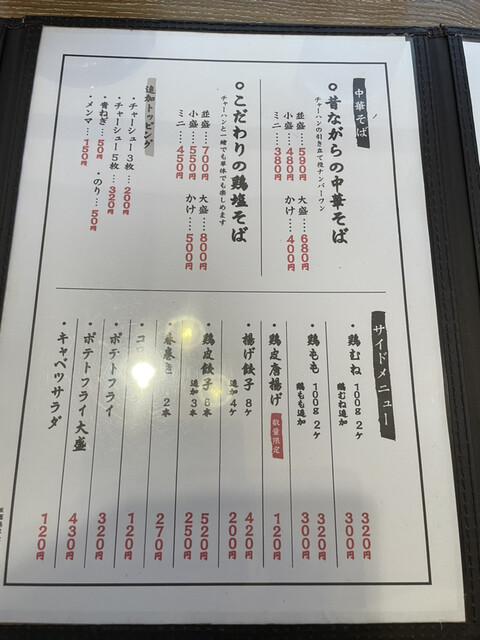 中華そば
昔ながらの中華そば
チャーハンの引き立て役ナンバーワン
並盛……590円
大盛……680円
小盛……480円
かけ……400円
ミニ……380円
こだわりの鶏塩そば
チャーハンと一緒でも単体でも楽しめます
並盛……700円
大盛……800円
小盛……550円
かけ……500円
ミニ……450円
追加トッピング
・チャーシュー3枚…200円
・チャーシュー5枚…320円
・青ねぎ…50円
・のり…50円
・メンマ…150円
サイドメニュー
・鶏むね 100g 2ケ 320円
鶏むね追加 300円
・鶏もも 100g 2ケ 320円
鶏もも追加 300円
・鶏皮唐揚げ 数量限定 120円
・揚げ餃子 8ケ 420円
追加4ケ 200円
・鶏皮餃子 6本 520円
追加3本 250円
・春巻き 2本 270円
・コロ 120円
・ポテトフライ 320円
・ポテトフライ大盛 430円
・キャベツサラダ 120円